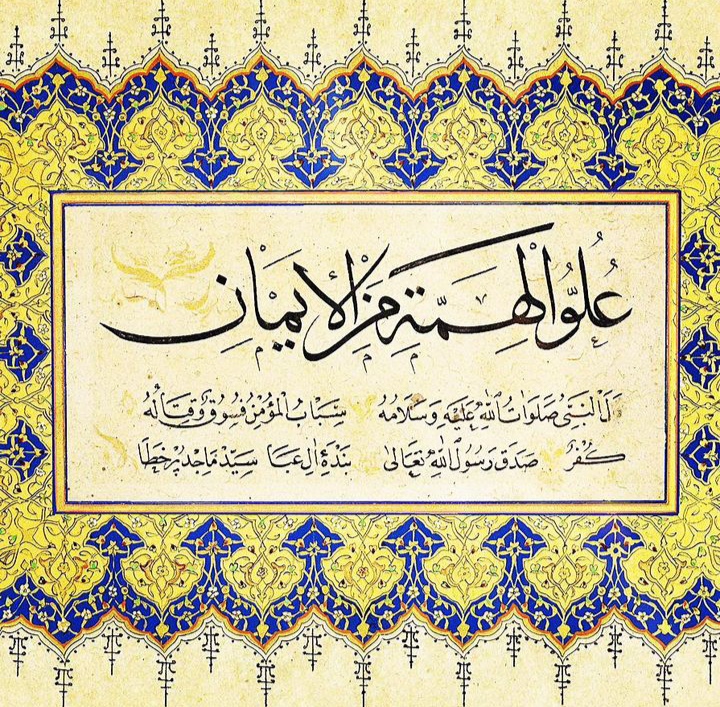 عُلُوُّ الْهِمَّةِ مِنَ الْإِيمَانِ
قَالَ النَّبِيُّ صَلَوَاتُ اللّٰهِ عَلَيْهِ وَسَلَامُهُ سِبَابُ الْمُؤْمِنِ فُسُوقٌ وَقِتَالُهُ
كُفْرٌ صَدَقَ رَسُولُ اللّٰهِ تَعَالَى بَنْدَهٔ اٰلِ عَبَا سَيِّدْ مَاجِدْ پُرْ خَطَا